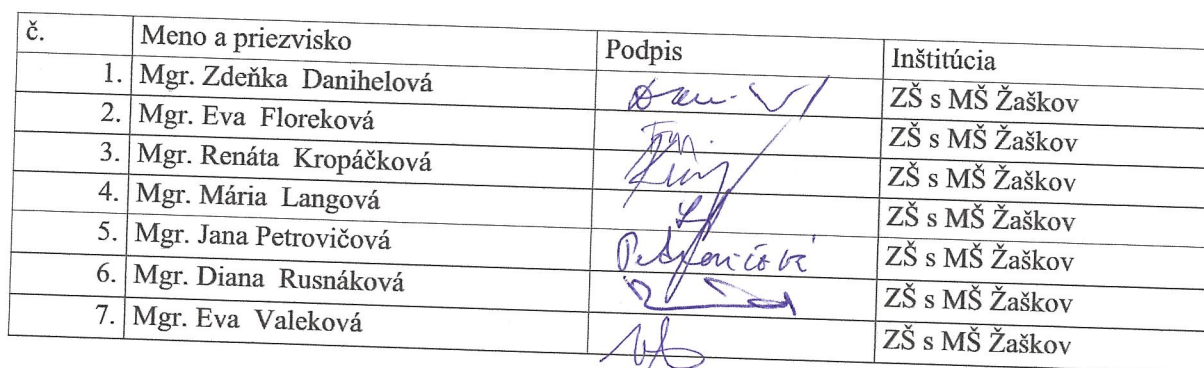 č. Meno a priezvisko Podpis Inštitúcia
1. Mgr. Zdeňka Danihelová ZŠ s MŠ Žaškov
2. Mgr. Eva Floreková ZŠ s MŠ Žaškov
3. Mgr. Renáta Kropáčková ZŠ s MŠ Žaškov
4. Mgr. Mária Langová ZŠ s MŠ Žaškov
5. Mgr. Jana Petrovičová Petrovičová ZŠ s MŠ Žaškov
6. Mgr. Diana Rusnáková ZŠ s MŠ Žaškov
7. Mgr. Eva Valeková ZŠ s MŠ Žaškov